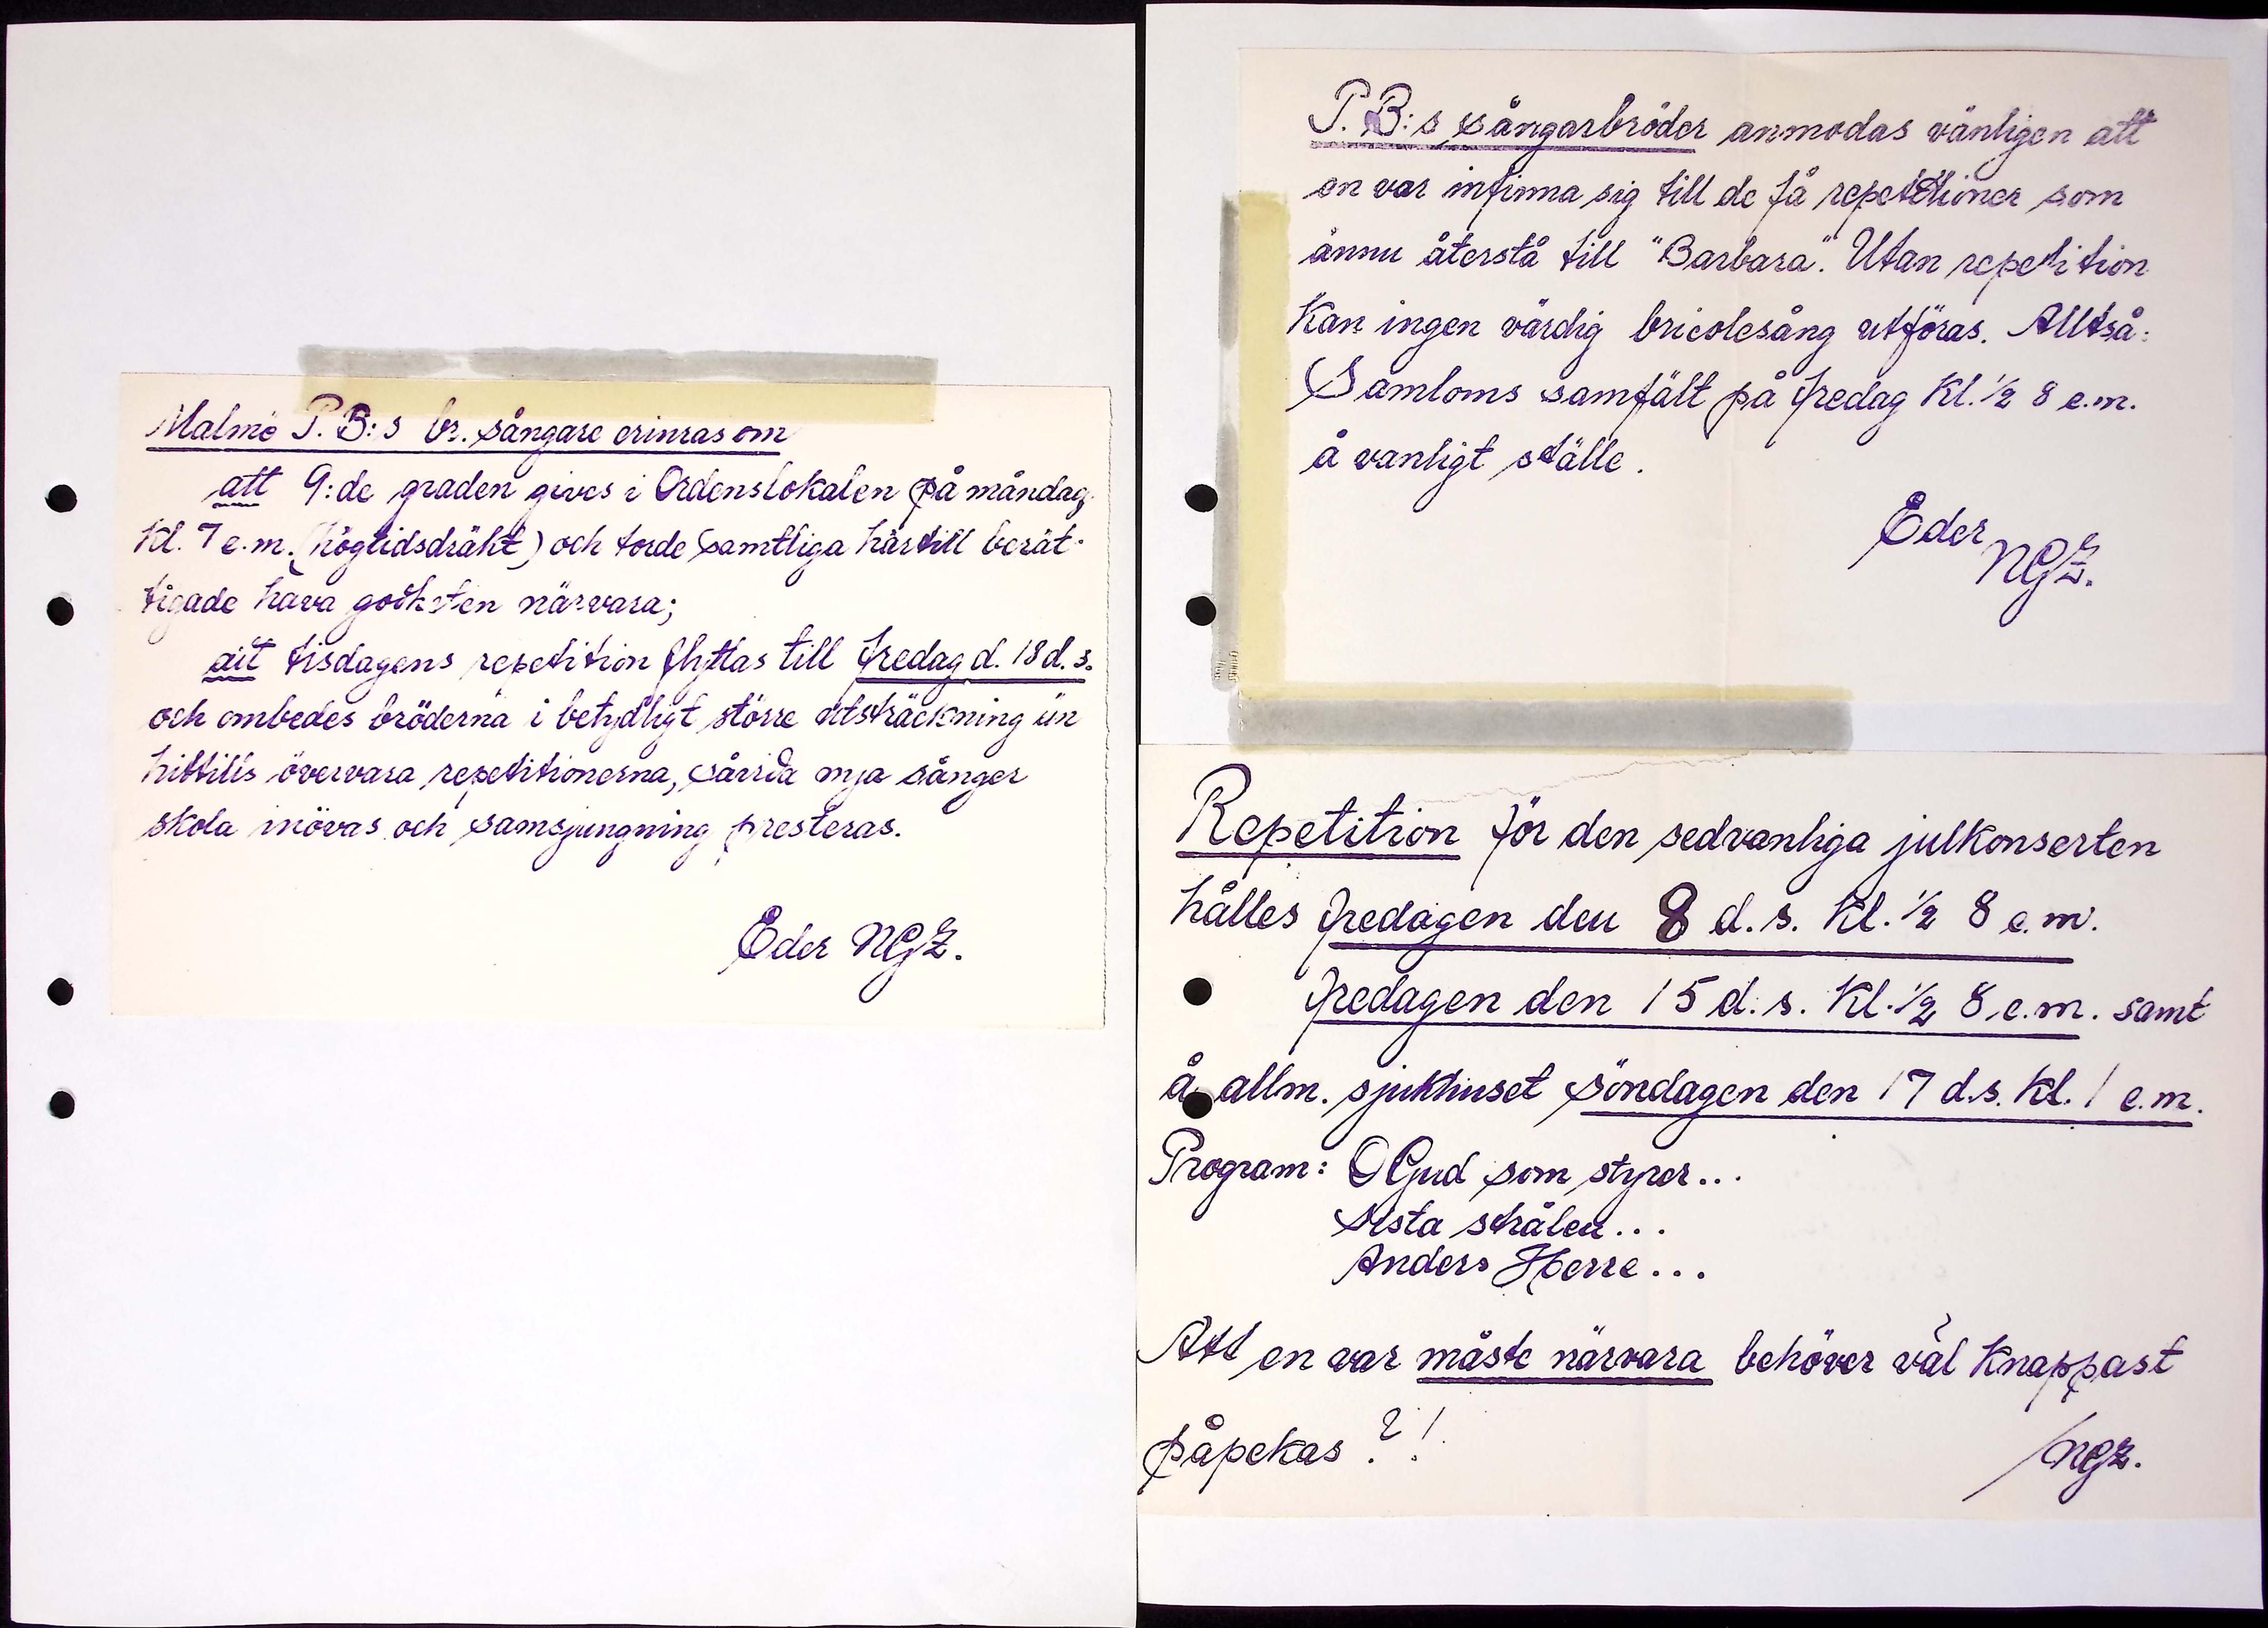 Malmö P.B:s br. sångare erinras om
att 9:de graden gives i Ordenslokalen på måndag
kl. 7 e.m. (högtidsdräkt) och torde samtliga härtill berät-
tigade hava godheten närvara;
att tisdagens repetition flyttas till fredag d. 18 d.s.
och ombedes bröderna i betydligt större utsträckning än
hittills övervara repetitionerna, såvida nya sånger
skola inövas och samsjungning presteras.
Eder NGZ.
P.B:s sångarbröder anmodas vänligen att
en var infinna sig till de få repetitioner som
ännu återstå till "Barbara". Utan repetition
kan ingen värdig bricolesång utföras. Alltså:
Samloms samfält på fredag kl. ½ 8 e.m.
å vanligt ställe.
Eder
NGZ.
Repetition för den sedvanliga julkonserten
hålles fredagen den 8 d.s. kl. ½ 8 e.m.
fredagen den 15 d.s. kl. ½ 8 e.m. samt
å allm. sjukhuset söndagen den 17 d.s. kl. 1 e.m.
Program: O Gud som styrer...
Sista strålen...
Anders Herre...
Att en var måste närvara behöver väl knappast
påpekas?!
/NGZ.